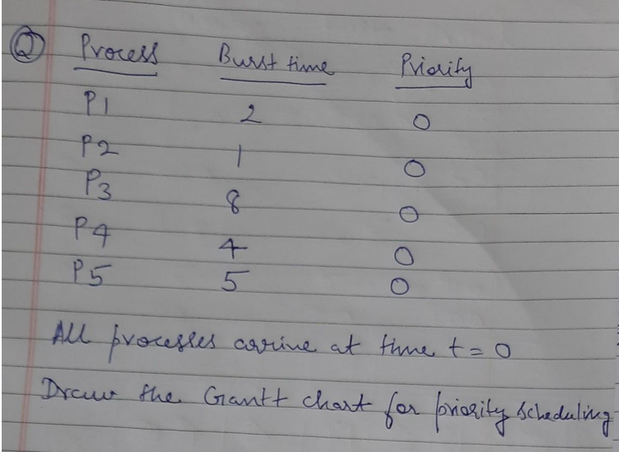 Q Process Burst time Priority
P1 2 0
P2 1 0
P3 8 0
P4 4 0
P5 5 0
All processes arrive at time t = 0
Draw the Gantt chart for priority scheduling